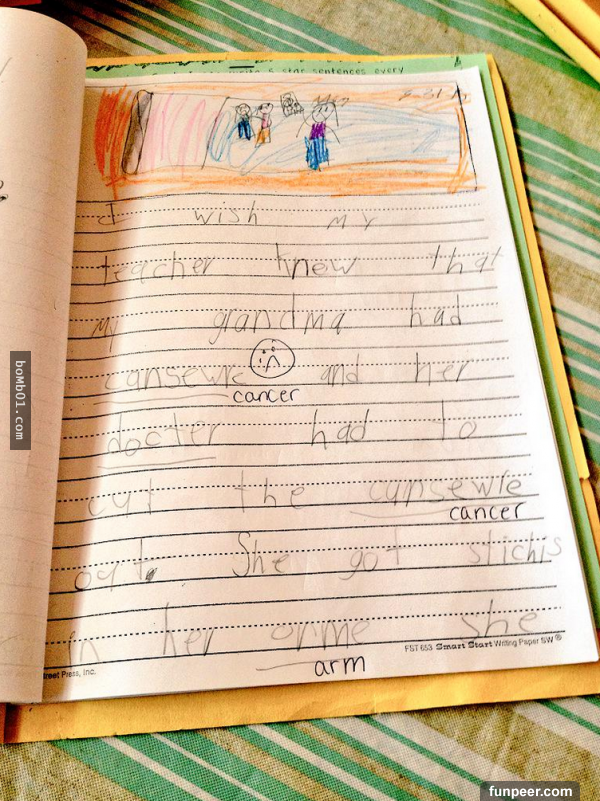 5 star sentences every
I wish my
teacher knew that
my grandma had
cansewre and her
cancer
docter had to
cut the cunsewre
cancer
out. She got stichis
in her orme she
arm
FST 653 Smart Start Writing Paper SW®
treet Press, Inc.
boMb01.com
funpeer.com